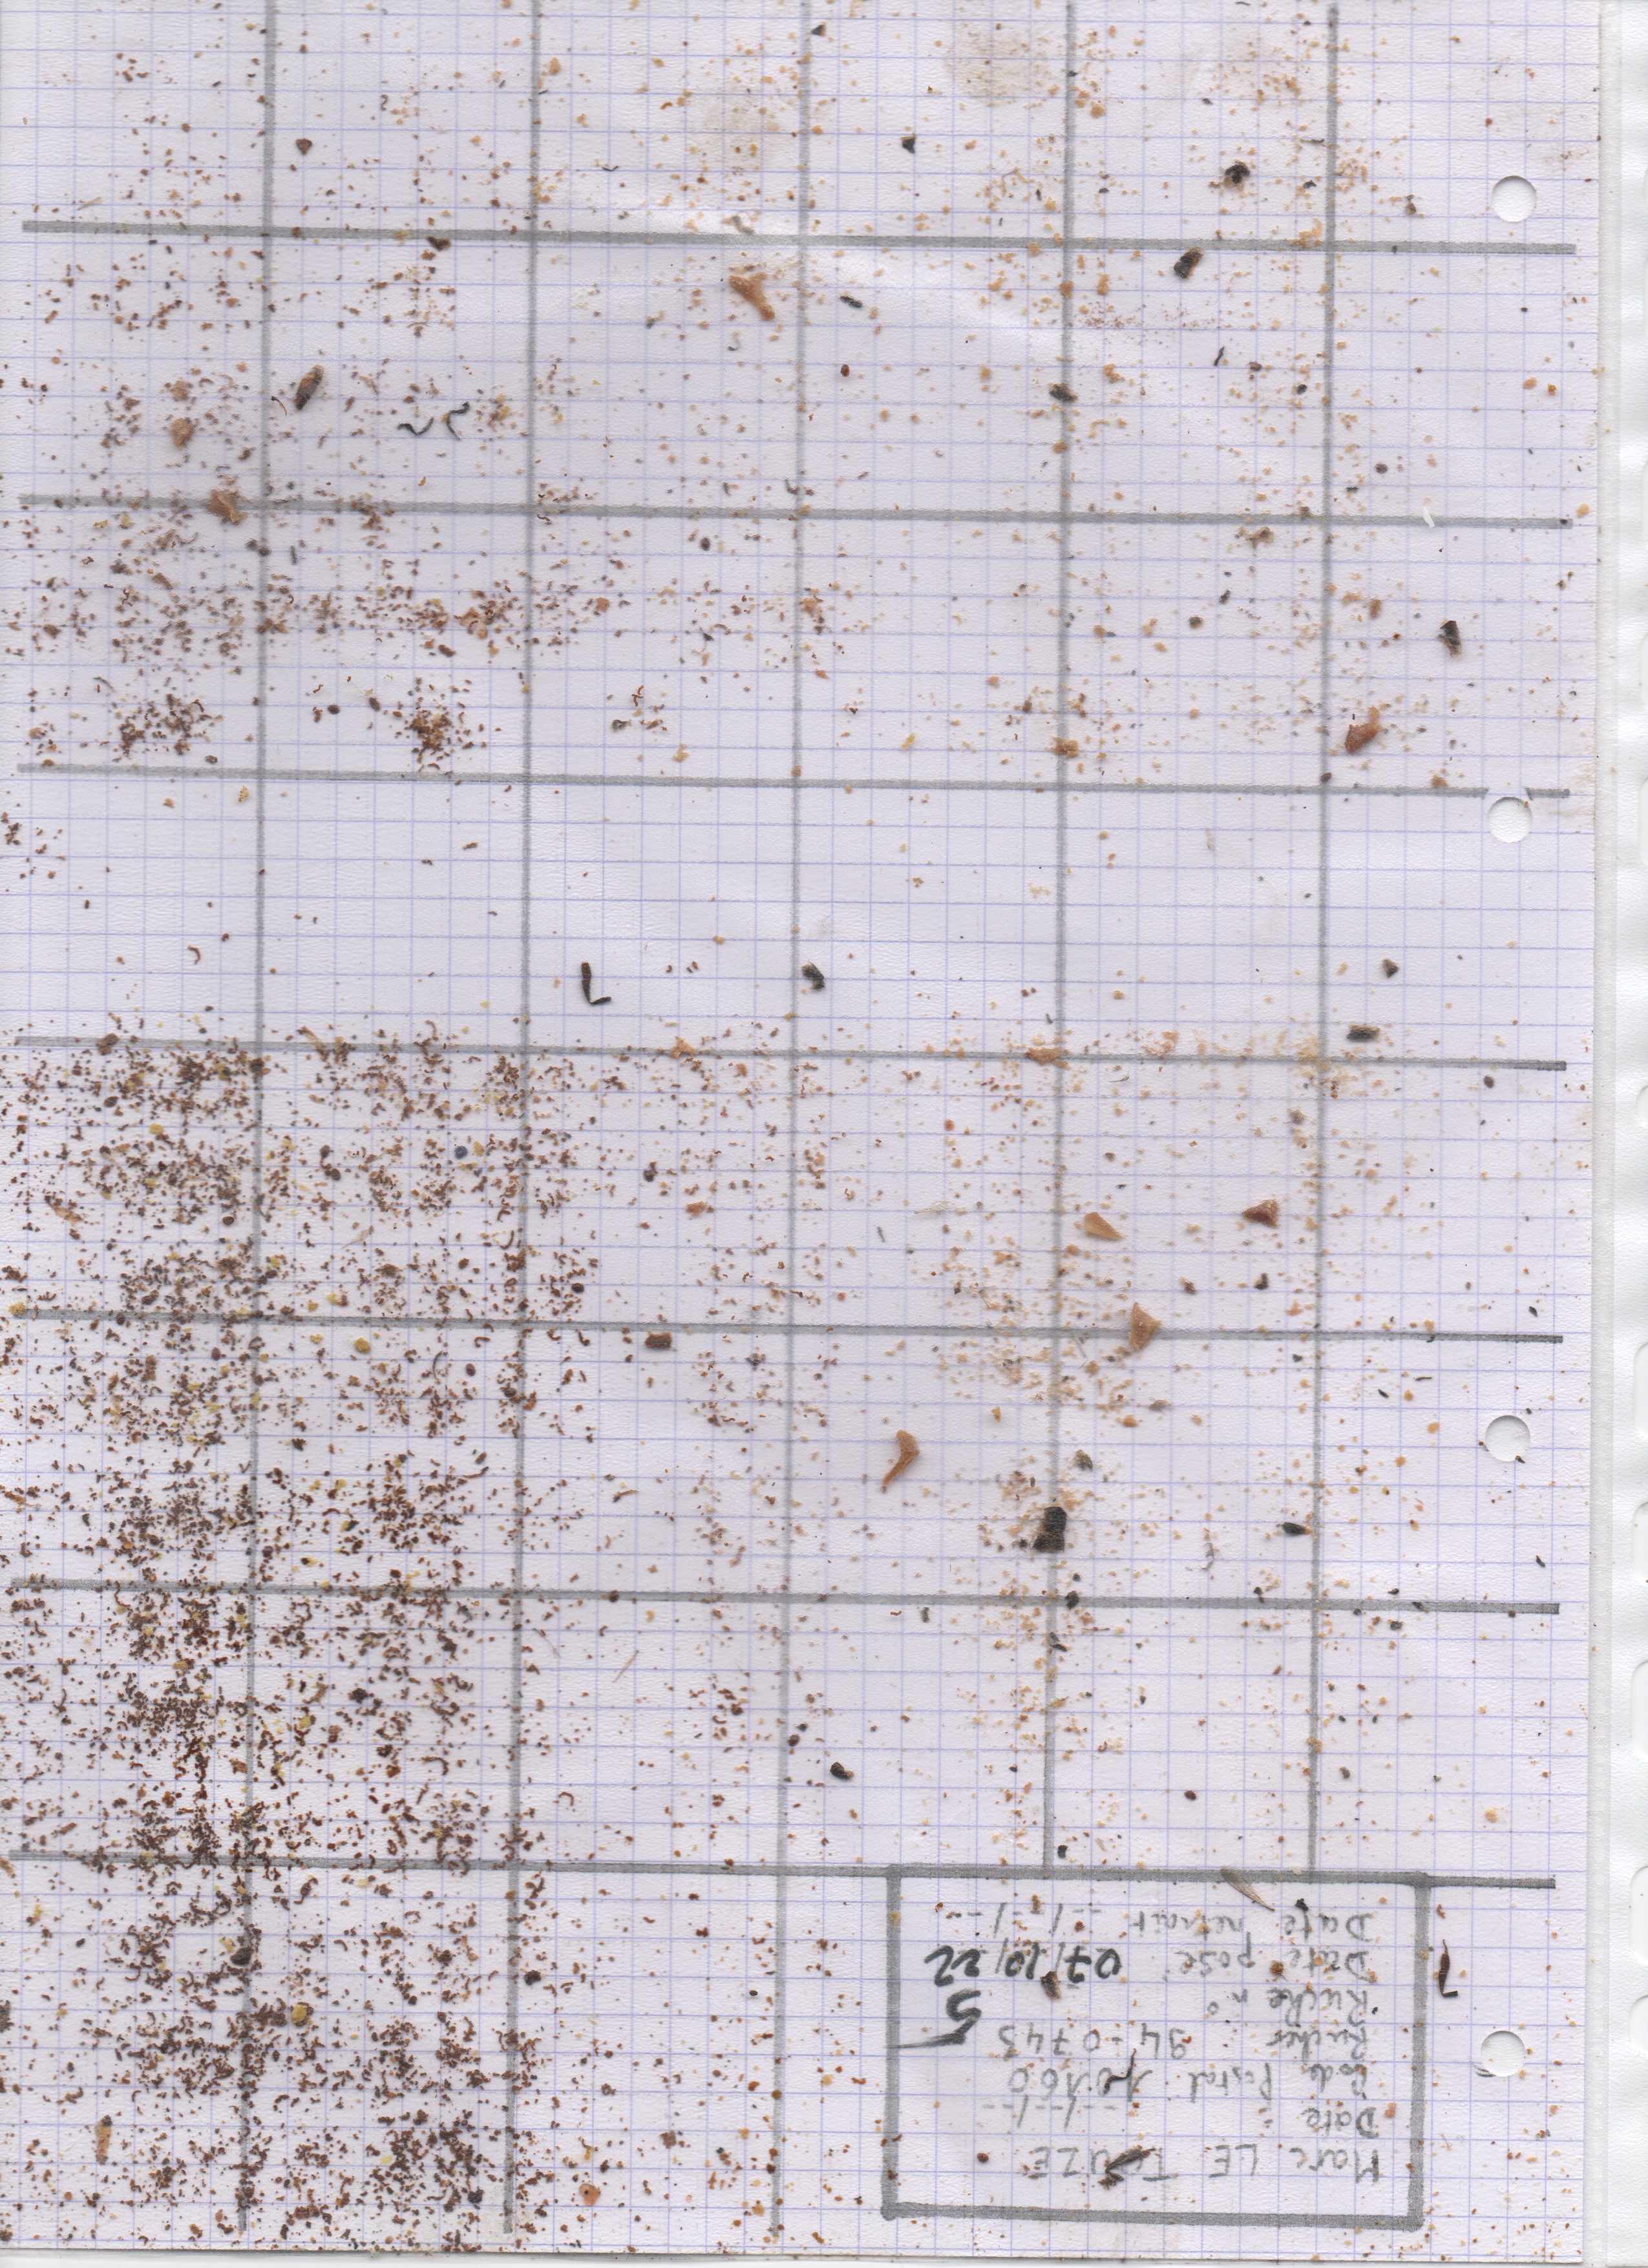 Marc LE TOUZE
Date : --/--/--
Code Postal 10160
Rucher : 94-0743
Ruche n° 5
Date pose : 07/10/22
Date retrait --/--/--